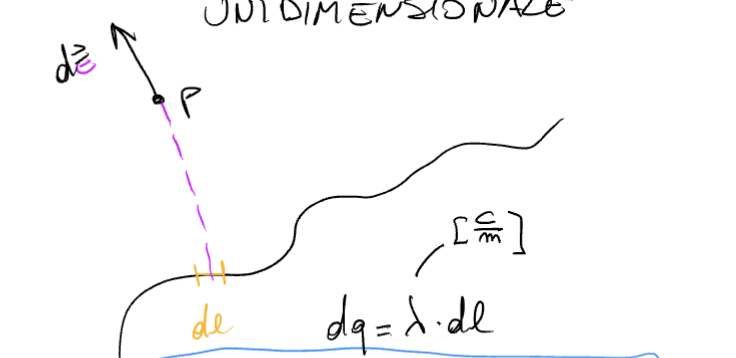 UNIDIMENSIONALE
dE⃗
P
[C/m]
dl
dq = λ · dl